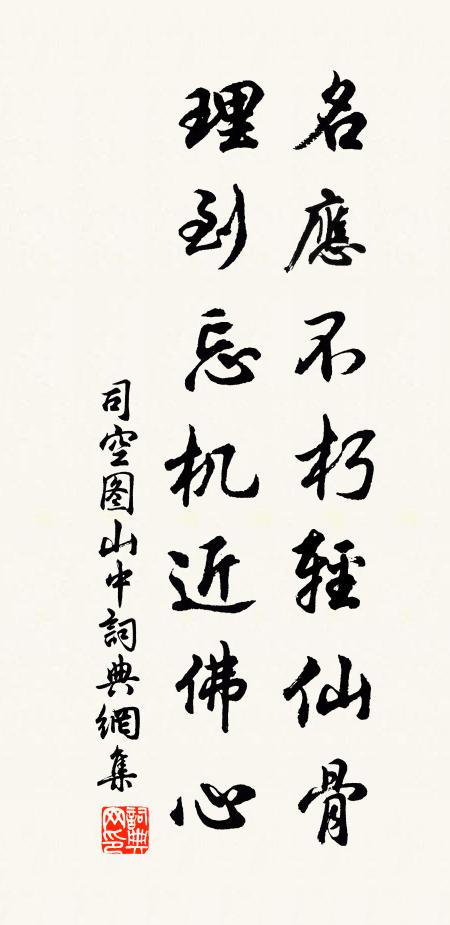 名應不朽輕仙骨
理到忘机近佛心
司空图山中詞典網集
詞典
网印